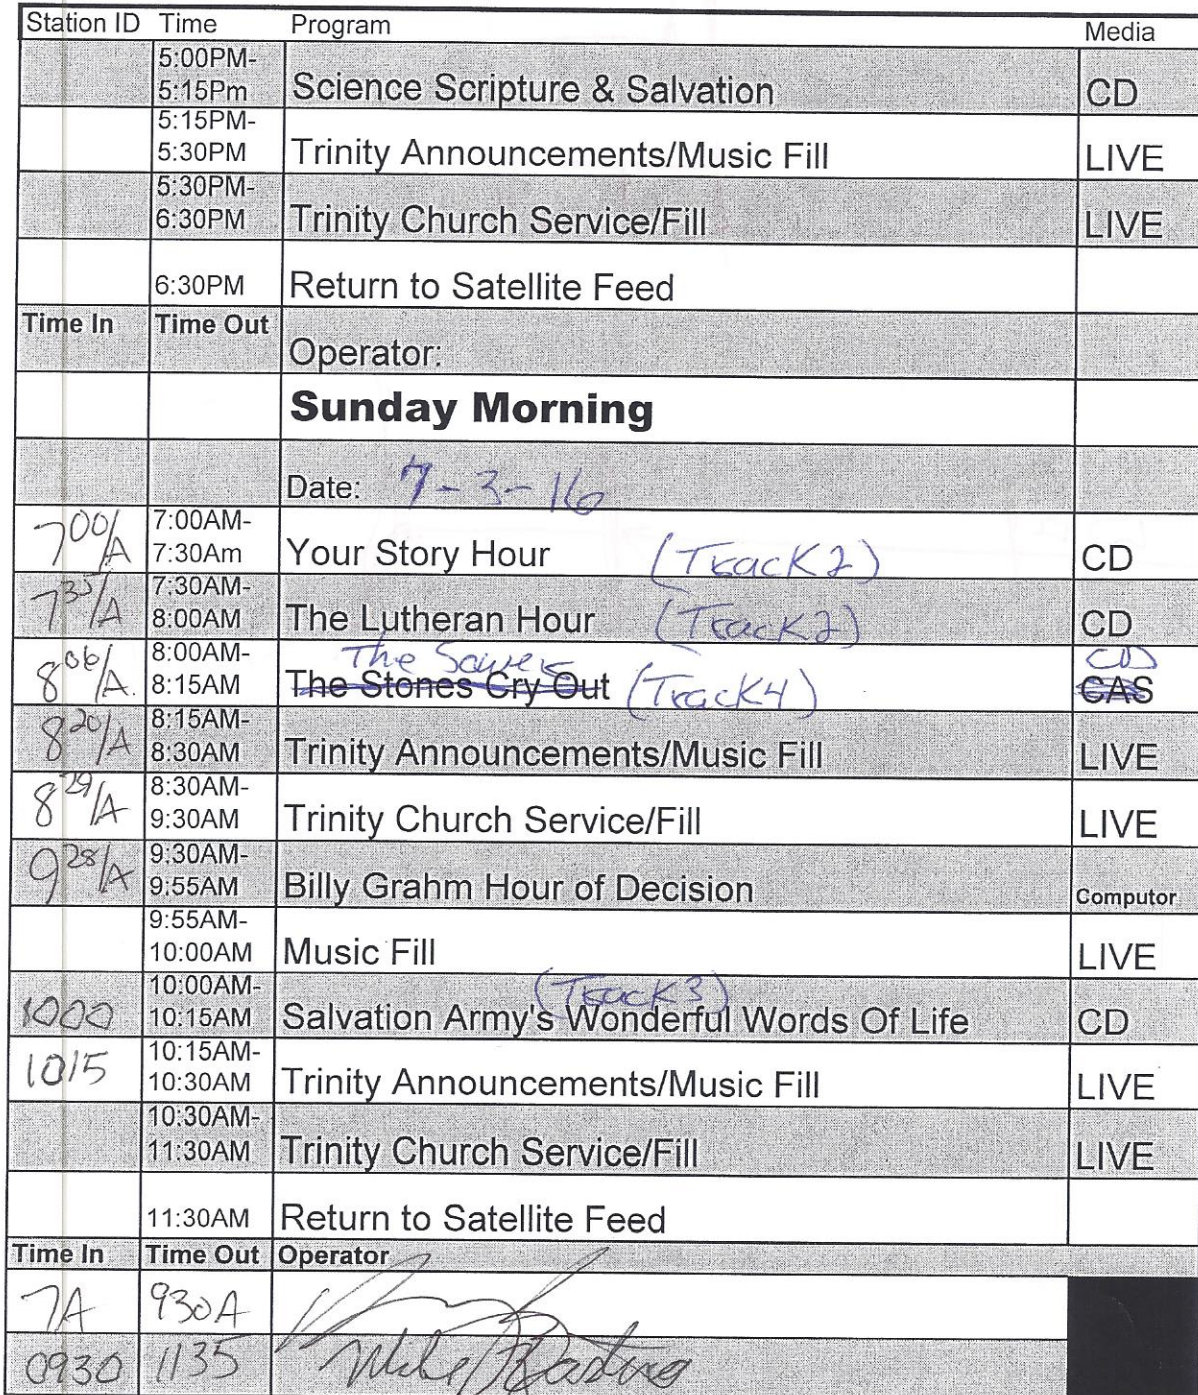 Station ID Time Program Media
5:00PM-
5:15Pm Science Scripture & Salvation CD
5:15PM-
5:30PM Trinity Announcements/Music Fill LIVE
5:30PM-
6:30PM Trinity Church Service/Fill LIVE
6:30PM Return to Satellite Feed
Time In Time Out
Operator:
Sunday Morning
Date: 7-3-16
700/A 7:00AM-
7:30Am Your Story Hour (Track 2) CD
7:30AM-
8:00AM The Lutheran Hour (Track 2) CD
806/A. 8:00AM- The CD
8:15AM The Stones Cry Out (Track 4) CAS
820/A 8:15AM-
8:30AM Trinity Announcements/Music Fill LIVE
829/A 8:30AM-
9:30AM Trinity Church Service/Fill LIVE
928/A 9:30AM-
9:55AM Billy Grahm Hour of Decision Computor
9:55AM-
10:00AM Music Fill LIVE
10:00AM- (Track 3)
1000 10:15AM Salvation Army's Wonderful Words Of Life CD
1015 10:15AM-
10:30AM Trinity Announcements/Music Fill LIVE
10:30AM-
11:30AM Trinity Church Service/Fill LIVE
11:30AM Return to Satellite Feed
Time In Time Out Operator
7A 930A
0930 1135 Mike